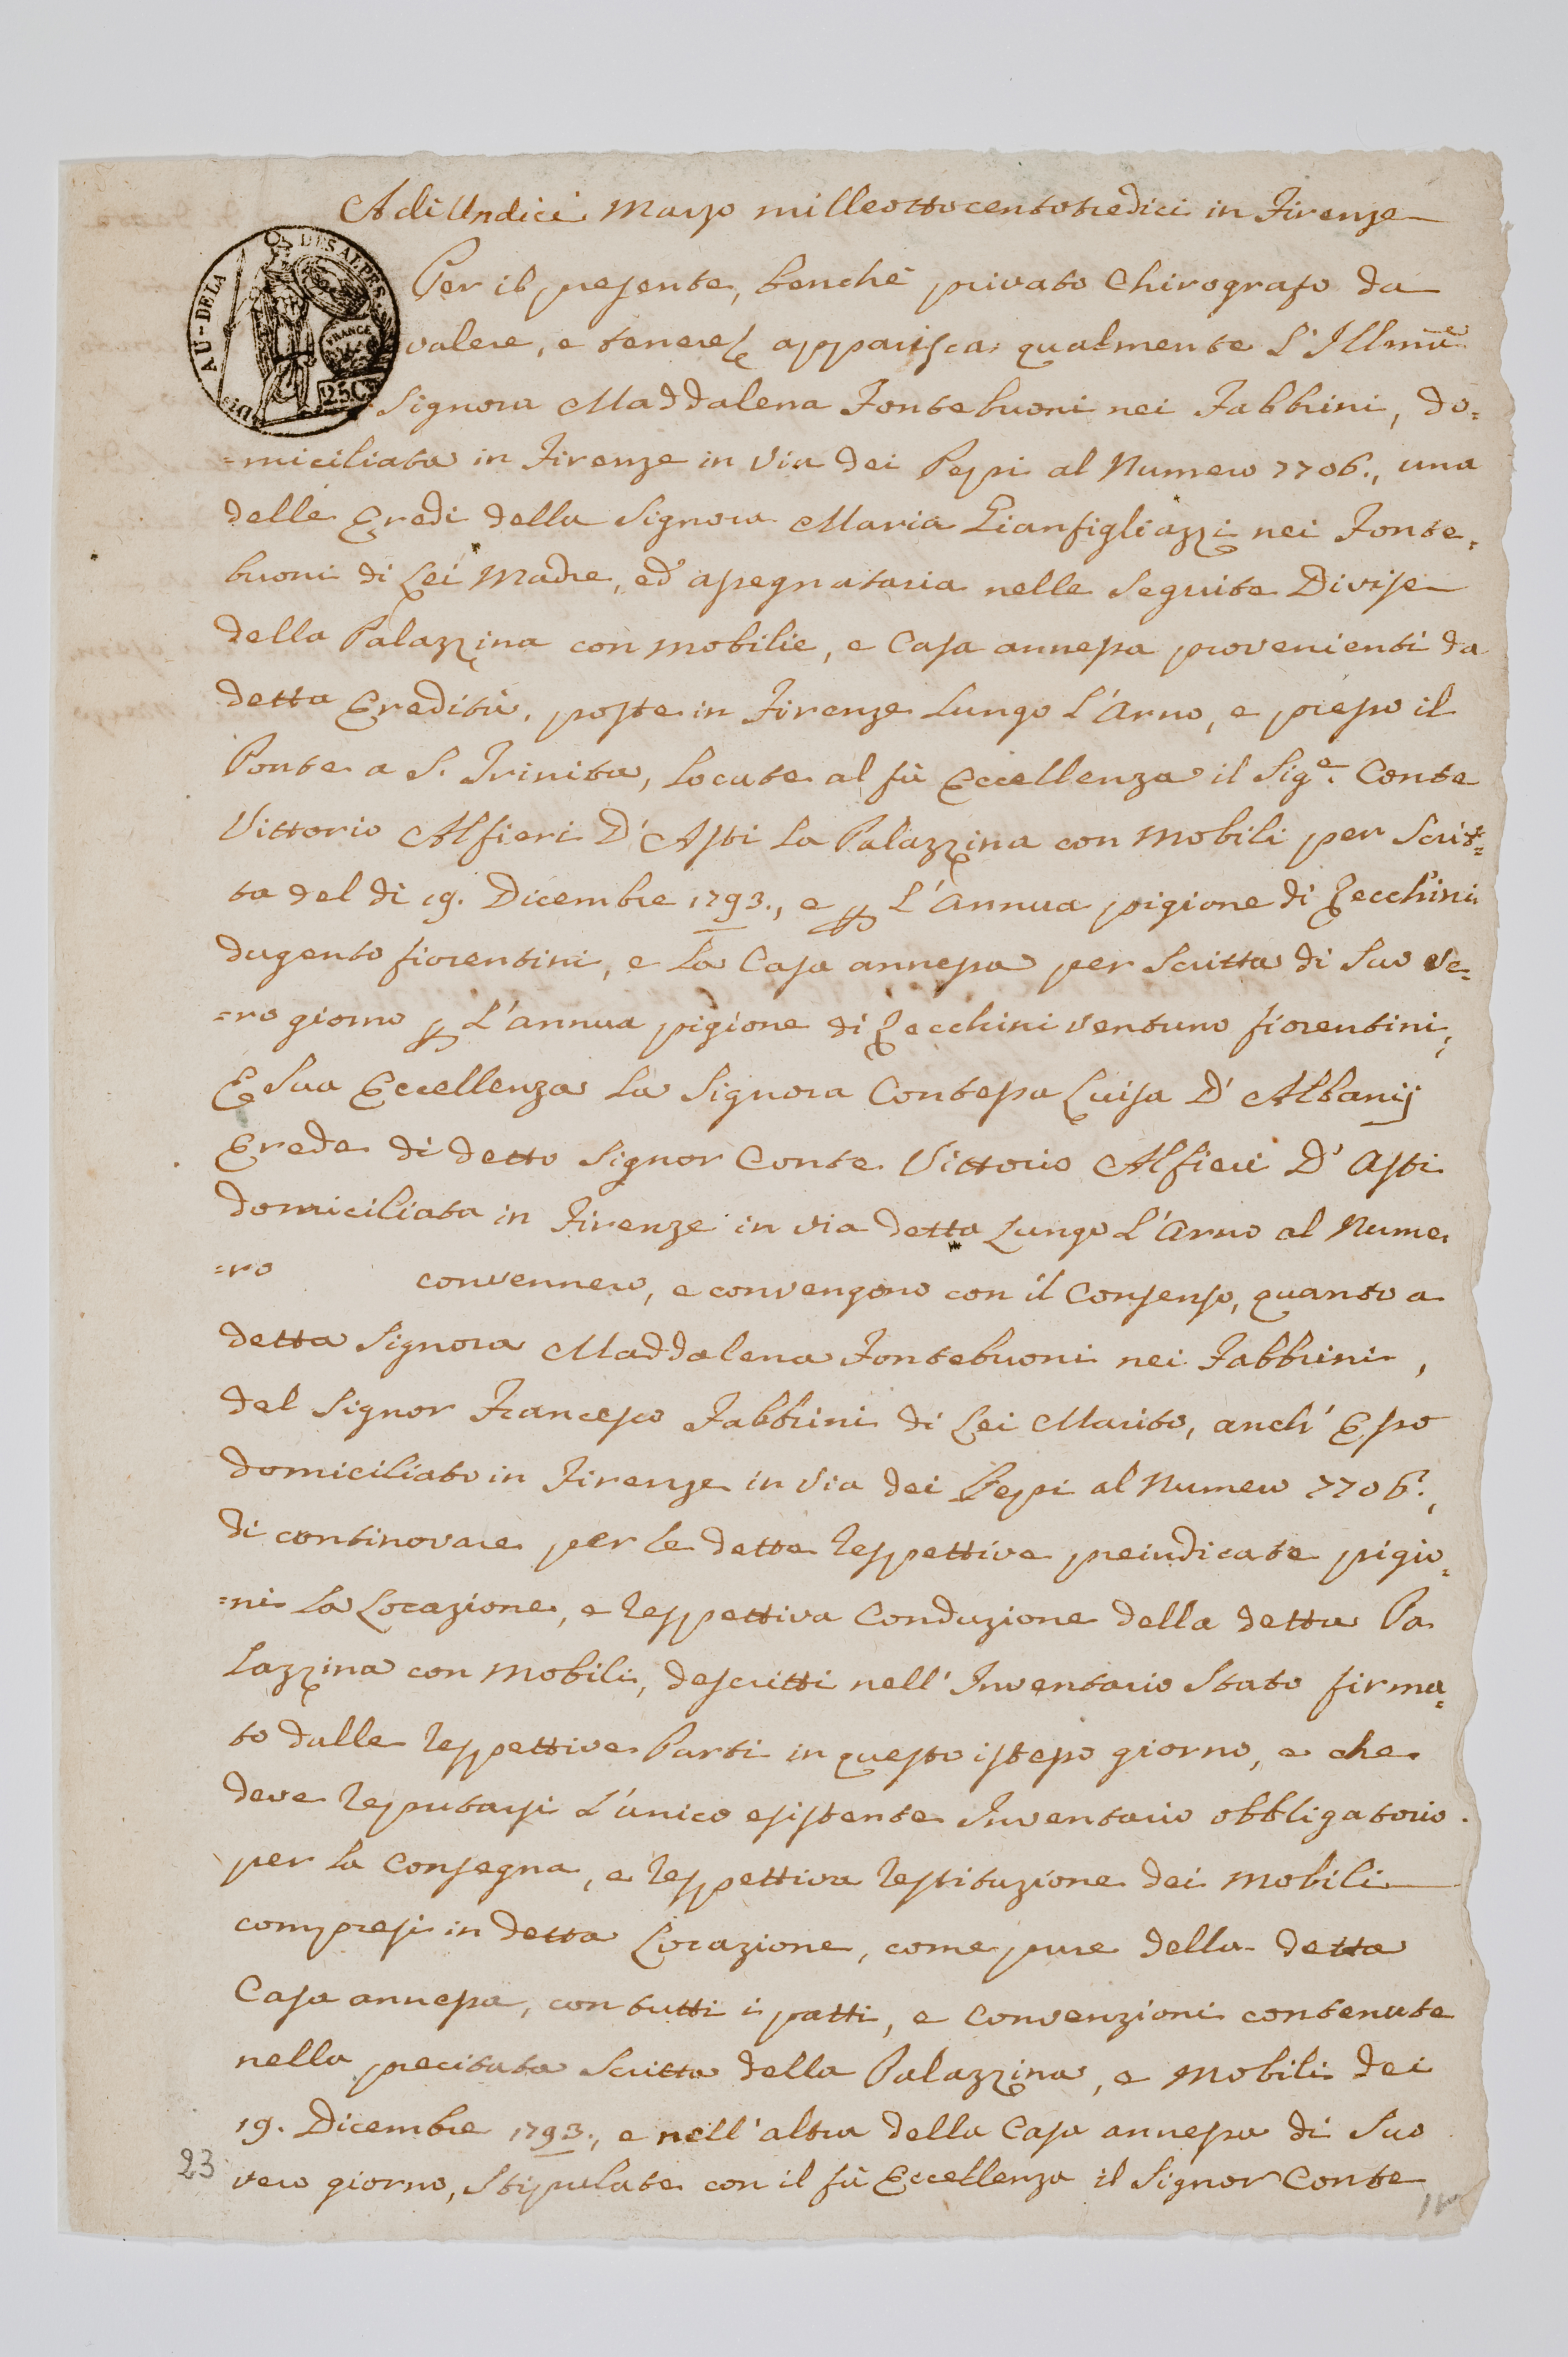 Adi Undici Marzo milleottocentotredici in Firenze
Per il presente, benchè privato Chirografo da
valere, e tenere, apparisca qualmente l'Illma
Signora Maddalena Fontebuoni nei Fabbrini, do=
=miciliata in Firenze in Via dei Pepi al Numero 7706., una
delle Eredi della Signora Maria Gianfigliazzi nei Fonte=
buoni di Lei Madre, ed assegnataria nelle Seguite Divise
della Palazzina con mobilie, e Casa annessa provenienti da
detta Eredità, poste in Firenze Lungo l'Arno, e presso il
Ponte a S. Trinita, Locate al fù Eccellenza il Sig.e Conte
Vittorio Alfieri D'Asti la Palazzina con Mobili per Scrit=
ta del di 19. Dicembre 1793., e p L'Annua pigione di Zecchini
dugento fiorentini, e la Casa annessa per Scritta di Suo ve=
=ro giorno p L'annua pigione di Zecchini ventuno fiorentini,
E Sua Eccellenza la Signora Contessa Luisa D'Albanij
Erede di detto Signor Conte Vittorio Alfieri D'Asti
domiciliata in Firenze in via detta Lungo L'Arno al Nume=
=ro convennero, e convengono con il Consenso, quanto a
detta Signora Maddalena Fontebuoni nei Fabbrini,
del Signor Francesco Fabbrini di Lei Marito, anch'Esso
domiciliato in Firenze in Via dei Pepi al Numero 7706.,
di continovare per le dette respettive preindicate pigio=
=ni la Locazione, e respettiva Conduzione della detta Pa
lazzina con Mobili, descritti nell'Inventario Stato firma=
to dalle respettive Parti in questo istesso giorno, e che
deve reputarsi l'unico esistente Inventario obbligatorio
per la Consegna, e respettiva restituzione dei Mobili
compresi in detta Locazione, come pure della detta
Casa annessa, con tutti i patti, e Convenzioni contenute
nella precitata Scritta della Palazzina, e Mobili dei
19. Dicembre 1793., e nell'altra della Casa annessa di Suo
vero giorno, Stipulate con il fù Eccellenza il Signor Conte
23
DÉP. AU-DELÀ DES ALPES.
FRANCE
25C.